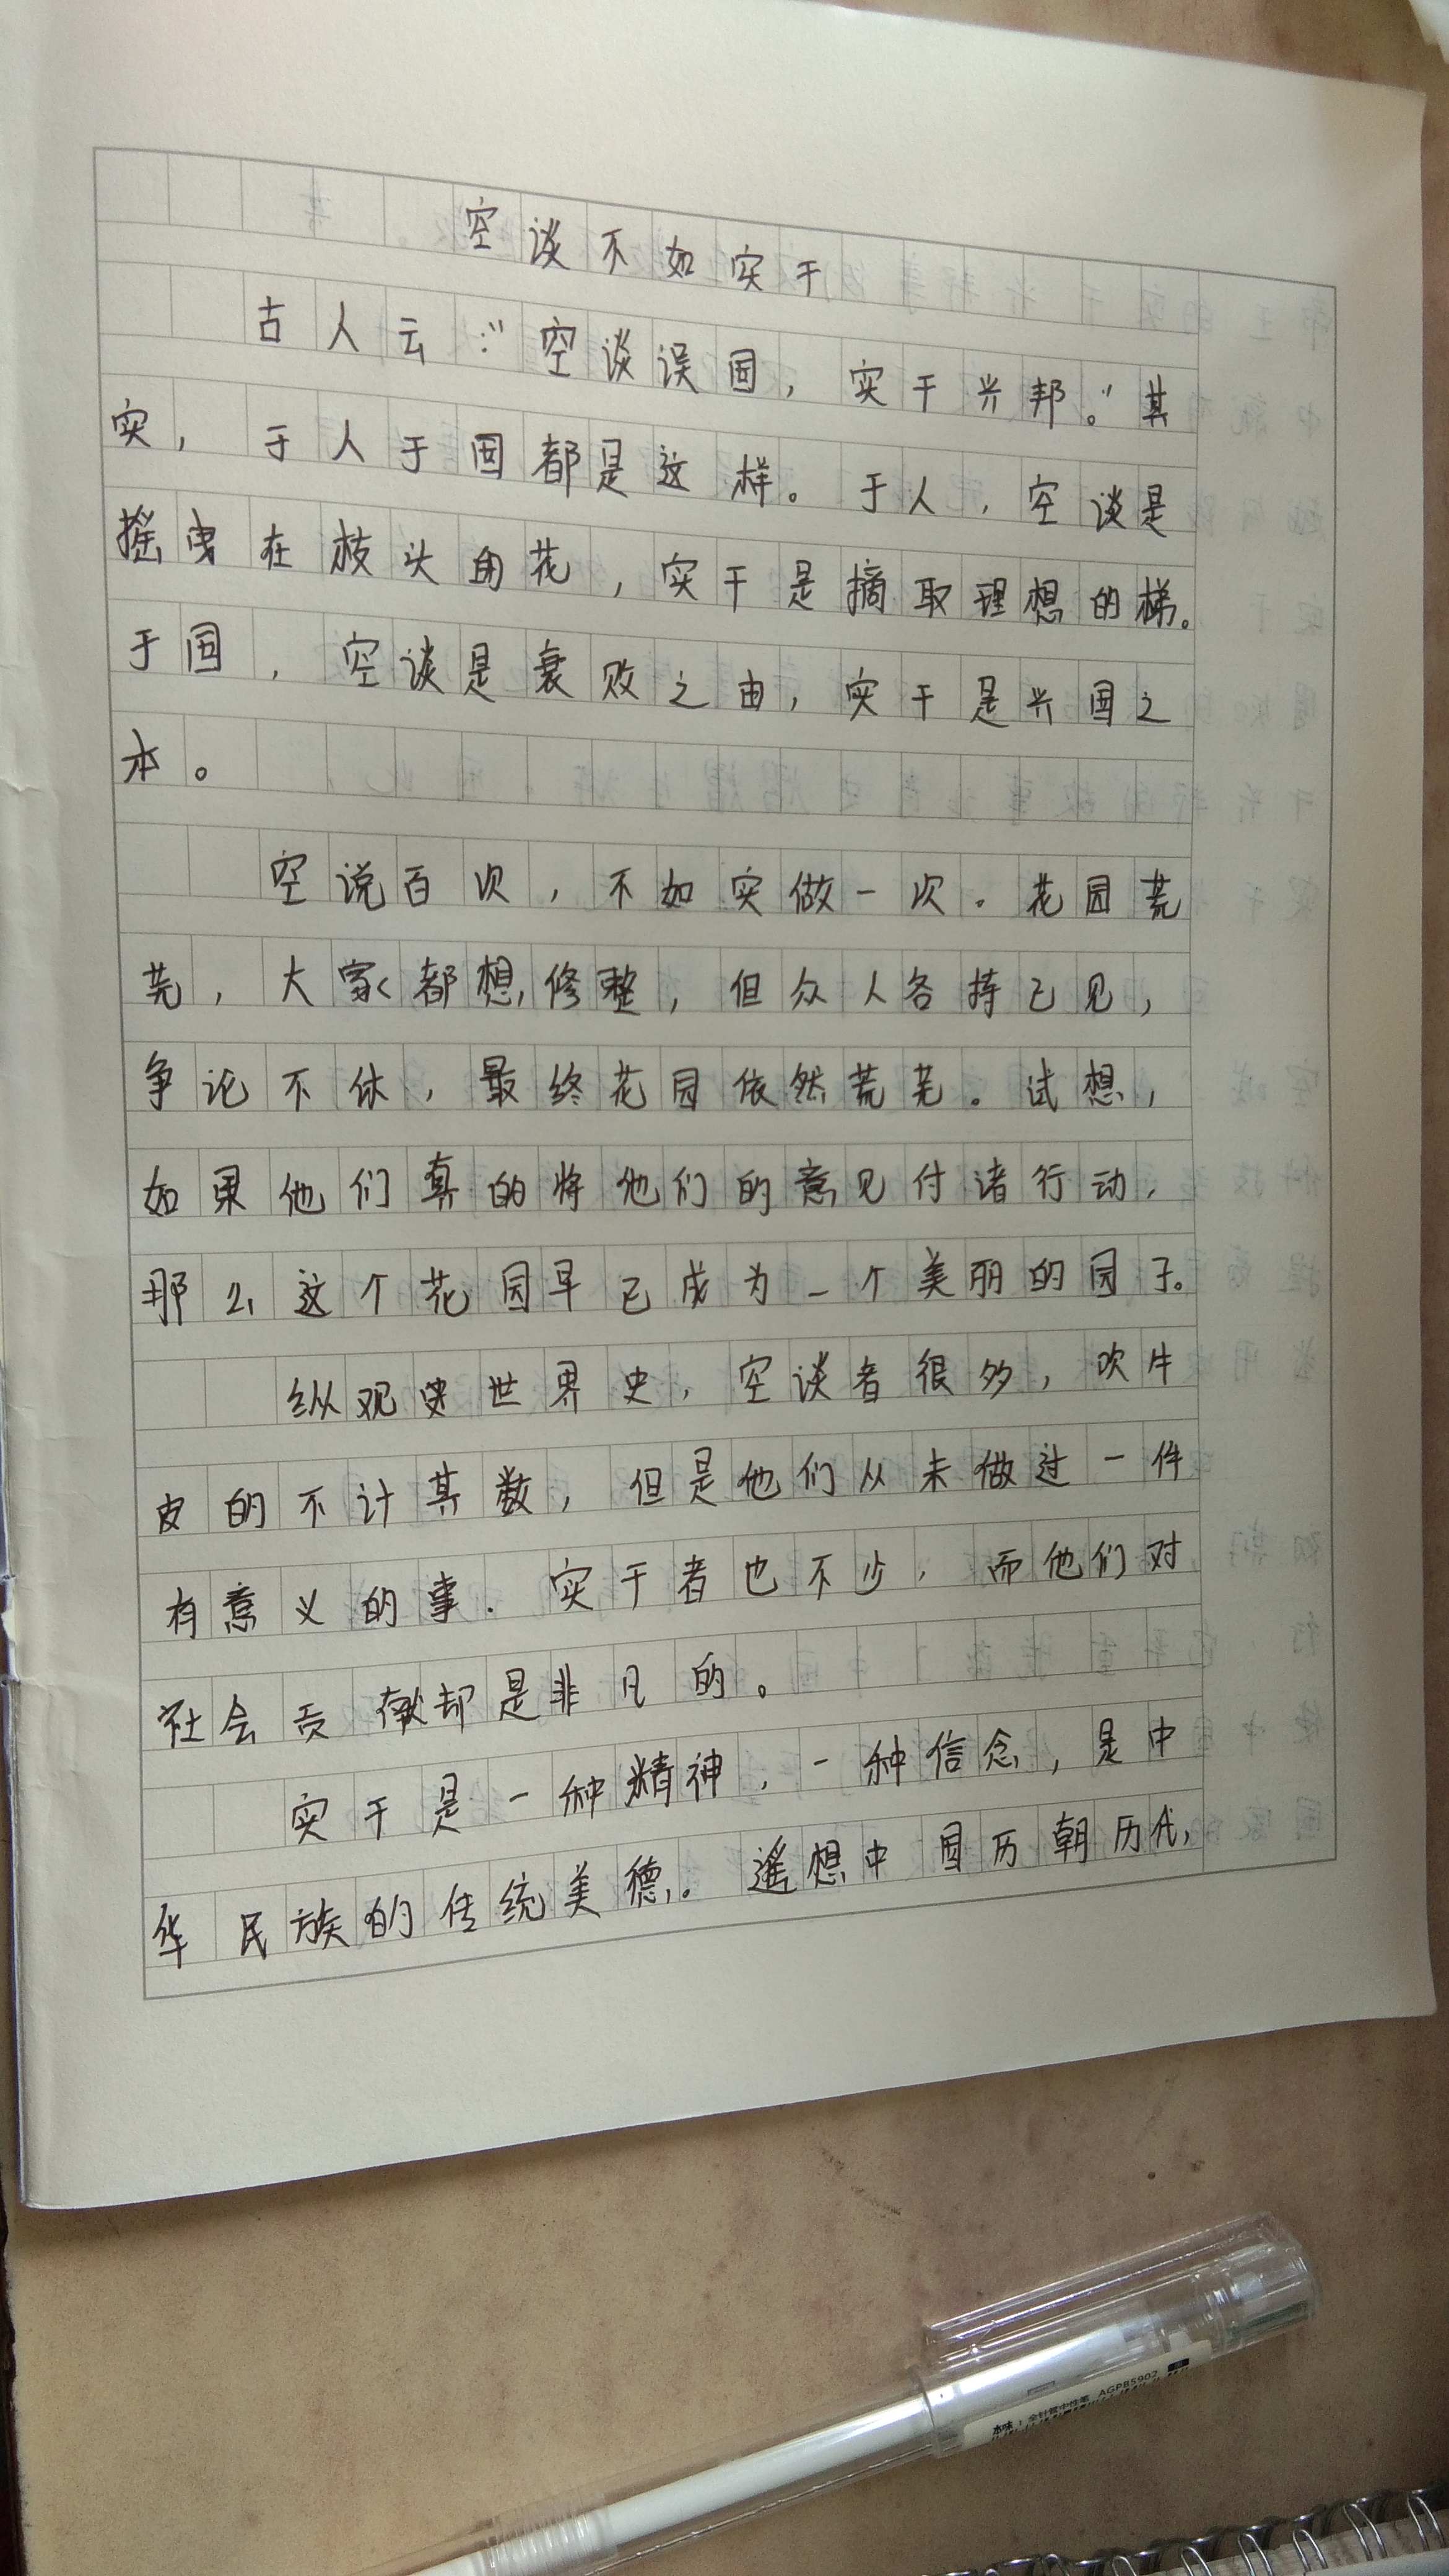 空谈不如实干
古人云:“空谈误国，实干兴邦。”其
实，于人于国都是这样。于人，空谈是
摇曳在枝头的花，实干是摘取理想的梯。
于国，空谈是衰败之由，实干是兴国之
本。
空说百次，不如实做一次。花园荒
芜，大家都想修整，但众人各持己见，
争论不休，最终花园依然荒芜。试想，
如果他们真的将他们的意见付诸行动，
那么这个花园早已成为一个美丽的园子。
纵观世界史，空谈者很多，吹牛
皮的不计其数，但是他们从未做过一件
有意义的事．实干者也不少，而他们对
社会贡献却是非凡的。
实干是一种精神，一种信念，是中
华民族的传统美德。遥想中国历朝历代，
本味 | 全针管中性笔 AGPB5902